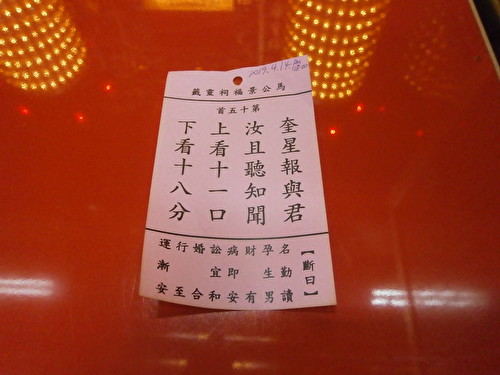 2019.4.14
馬公景福祠靈籤
第十五首
奎星報與君
汝且聽知聞
上看十一口
下看十八分
【斷曰】
名勤讀
孕生男
財有
病即安
訟宜和
婚合
行至
運漸安